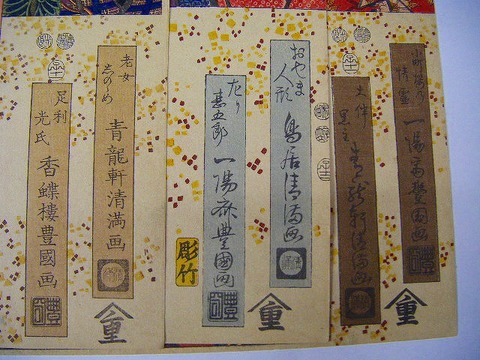 小町桜の
精霊
一陽斎豊國画
大伴
黒主
青龍軒清満画
重
おやま
人形
鳥居清満画
左り
甚五郎
一陽斎豊國画
彫竹
重
老女
しのゝめ
青龍軒清満画
足利
光氏
香蝶樓豊國画
重